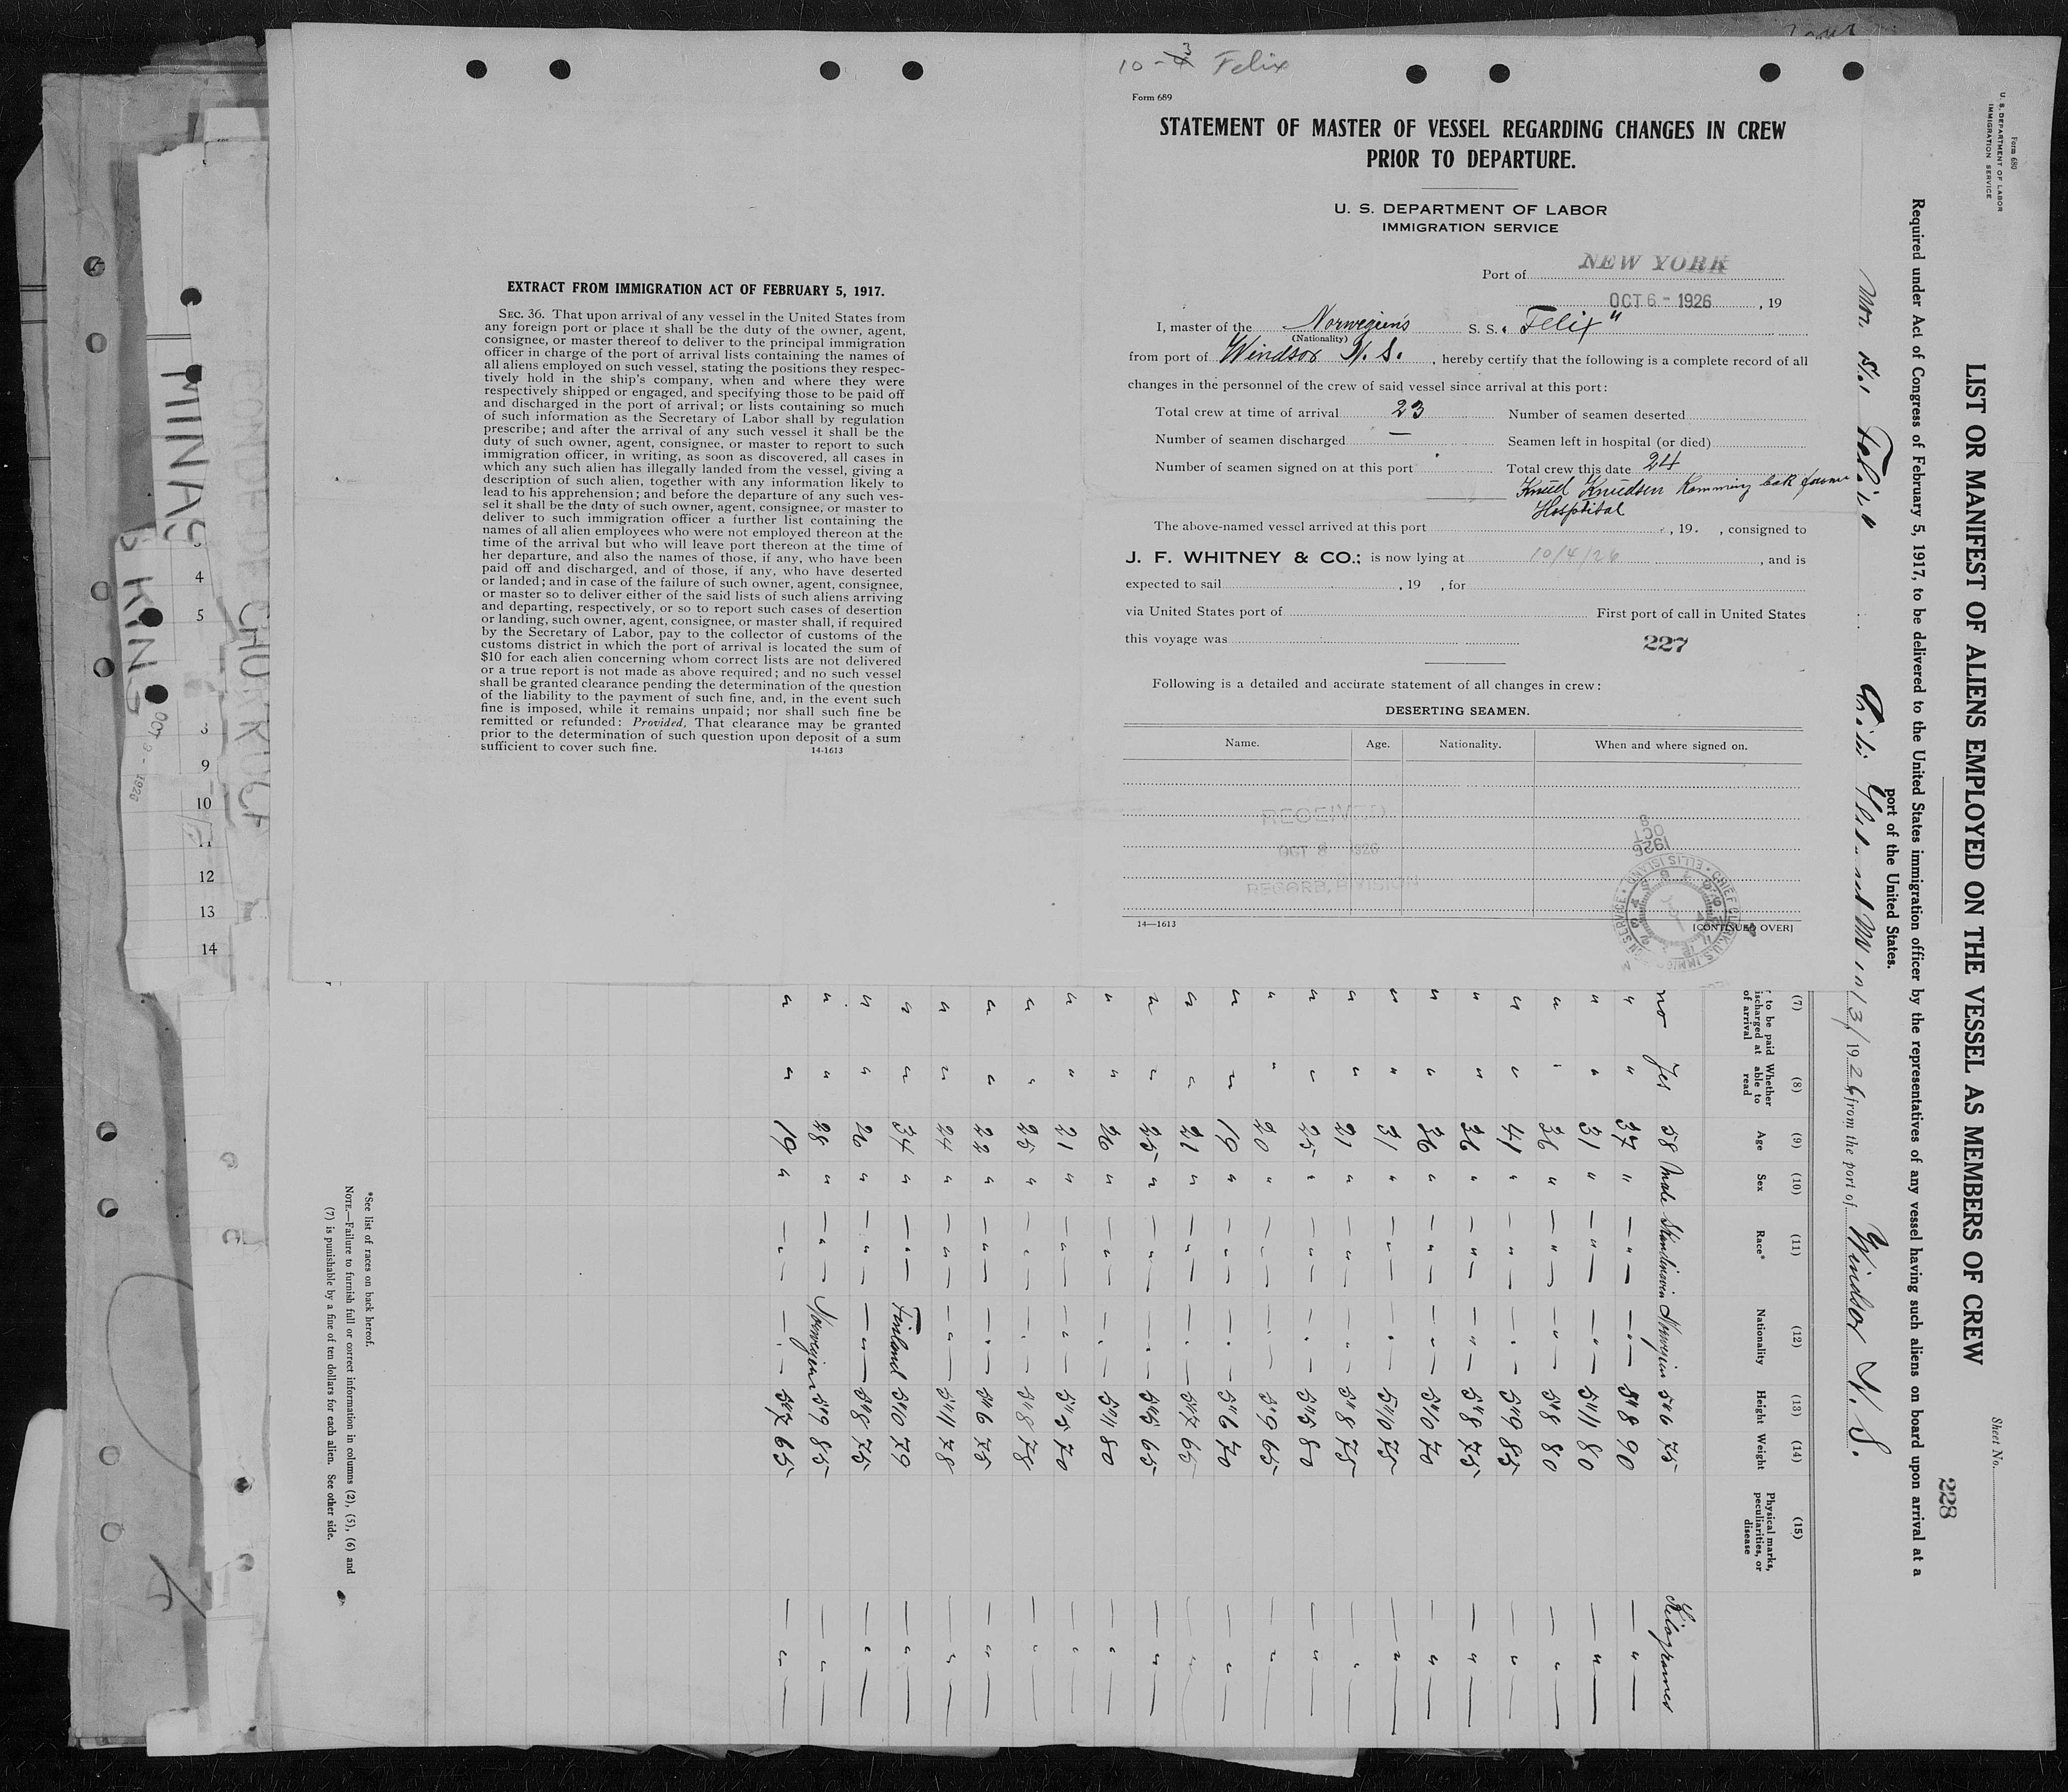 10-3 Felix
Form 689
STATEMENT OF MASTER OF VESSEL REGARDING CHANGES IN CREW
PRIOR TO DEPARTURE.
U. S. DEPARTMENT OF LABOR
IMMIGRATION SERVICE
Port of NEW YORK
OCT 6 - 1926, 19
I, master of the Norwegiens S. S. "Felix"
(Nationality)
from port of Windsor N. S., hereby certify that the following is a complete record of all
changes in the personnel of the crew of said vessel since arrival at this port:
Total crew at time of arrival 23 Number of seamen deserted
Number of seamen discharged — Seamen left in hospital (or died)
Number of seamen signed on at this port Total crew this date 24
Knud Knudsen Komming bak
Hospbital
The above-named vessel arrived at this port , 19. , consigned to
J. F. WHITNEY & CO.; is now lying at 10/4/26, and is
expected to sail , 19 , for
via United States port of First port of call in United States
this voyage was 227
Following is a detailed and accurate statement of all changes in crew:
DESERTING SEAMEN.
Name. Age. Nationality. When and where signed on.
RECEIVED
OCT 8 1926
RECORD DIVISION
1926
OCT
8
14—1613 [CONTINUED OVER]
EXTRACT FROM IMMIGRATION ACT OF FEBRUARY 5, 1917.
SEC. 36. That upon arrival of any vessel in the United States from
any foreign port or place it shall be the duty of the owner, agent,
consignee, or master thereof to deliver to the principal immigration
officer in charge of the port of arrival lists containing the names of
all aliens employed on such vessel, stating the positions they respec-
tively hold in the ship's company, when and where they were
respectively shipped or engaged, and specifying those to be paid off
and discharged in the port of arrival; or lists containing so much
of such information as the Secretary of Labor shall by regulation
prescribe; and after the arrival of any such vessel it shall be the
duty of such owner, agent, consignee, or master to report to such
immigration officer, in writing, as soon as discovered, all cases in
which any such alien has illegally landed from the vessel, giving a
description of such alien, together with any information likely to
lead to his apprehension; and before the departure of any such ves-
sel it shall be the duty of such owner, agent, consignee, or master to
deliver to such immigration officer a further list containing the
names of all alien employees who were not employed thereon at the
time of the arrival but who will leave port thereon at the time of
her departure, and also the names of those, if any, who have been
paid off and discharged, and of those, if any, who have deserted
or landed; and in case of the failure of such owner, agent, consignee,
or master so to deliver either of the said lists of such aliens arriving
and departing, respectively, or so to report such cases of desertion
or landing, such owner, agent, consignee, or master shall, if required
by the Secretary of Labor, pay to the collector of customs of the
customs district in which the port of arrival is located the sum of
$10 for each alien concerning whom correct lists are not delivered
or a true report is not made as above required; and no such vessel
shall be granted clearance pending the determination of the question
of the liability to the payment of such fine, and, in the event such
fine is imposed, while it remains unpaid; nor shall such fine be
remitted or refunded: Provided, That clearance may be granted
prior to the determination of such question upon deposit of a sum
sufficient to cover such fine. 14-1613
Form 680
U. S. DEPARTMENT OF LABOR
IMMIGRATION SERVICE
Sheet No.
228
LIST OR MANIFEST OF ALIENS EMPLOYED ON THE VESSEL AS MEMBERS OF CREW
Required under Act of Congress of February 5, 1917, to be delivered to the United States immigration officer by the representatives of any vessel having such aliens on board upon arrival at a
port of the United States.
10/3/ 1926 from the port of Windsor N. S.
(7) (8) (9) (10) (11) (12) (13) (14) (15)
to be paid Whether Age Sex Race* Nationality Height Weight Physical marks,
discharged at able to peculiarities, or
of arrival read disease
no Yes 58 Male Skandinavin Norwegin 5"6 75 Kilogrames
" " 37 " " " 5"8 90 "
" " 31 " " " 5"11 80 "
" " 36 " " " 5"8 80 "
" " 41 " " " 5"9 85 "
" " 36 " " " 5"8 75 "
" " 36 " " " 5"10 70 "
" " 31 " " " 5"10 75 "
" " 21 " " " 5"8 75 "
" " 25 " " " 5"5 80 "
" " 20 " " " 5"9 65 "
" " 19 " " " 5"6 70 "
" " 21 " " " 5"7 65 "
" " 25 " " " 5"5 65 "
" " 26 " " " 5"11 80 "
" " 21 " " " 5"5 70 "
" " 25 " " " 5"8 78 "
" " 22 " " " 5"6 75 "
" " 24 " " " 5"11 78 "
" " 34 " " Finland 5"10 79 "
" " 26 " " " 5"8 75 "
" " 28 " " Norwegien 5"9 85 "
" " 19 " " " 5"7 65 "
*See list of races on back hereof.
NOTE.—Failure to furnish full or correct information in columns (2), (5), (6) and
(7) is punishable by a fine of ten dollars for each alien. See other side.
MINAS
KING
OCT 3 - 1926
4
5
9
10
11
12
13
14